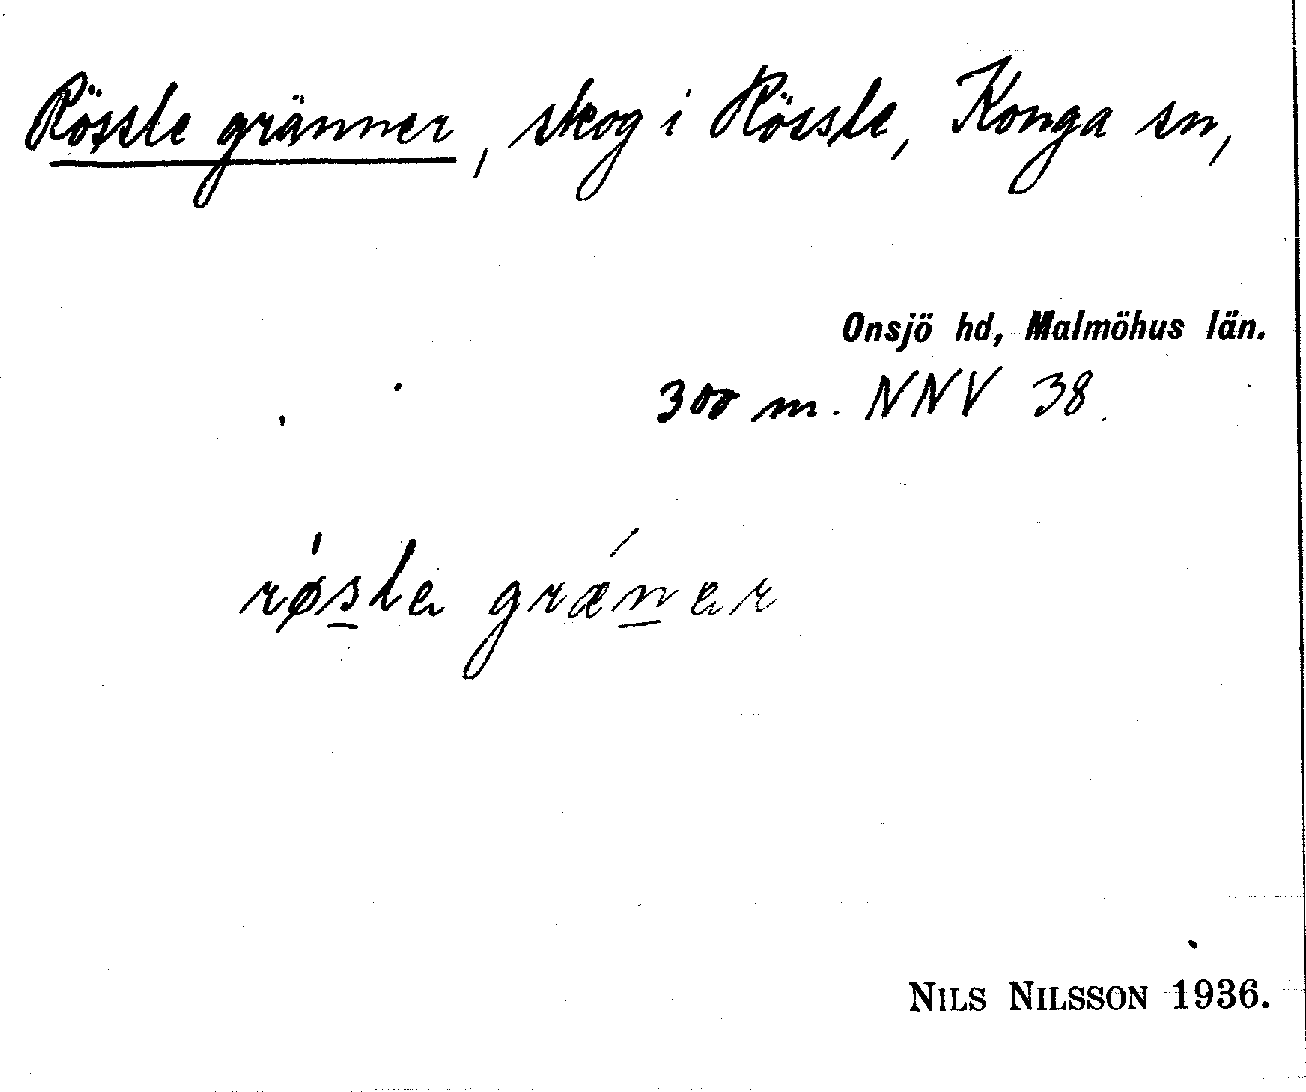 Rössle gränner, skog i Rössle, Konga sn,
Onsjö hd, Malmöhus län.
300 m. NNV 38.
rǿs̲le grǽn̲er
NILS NILSSON 1936.